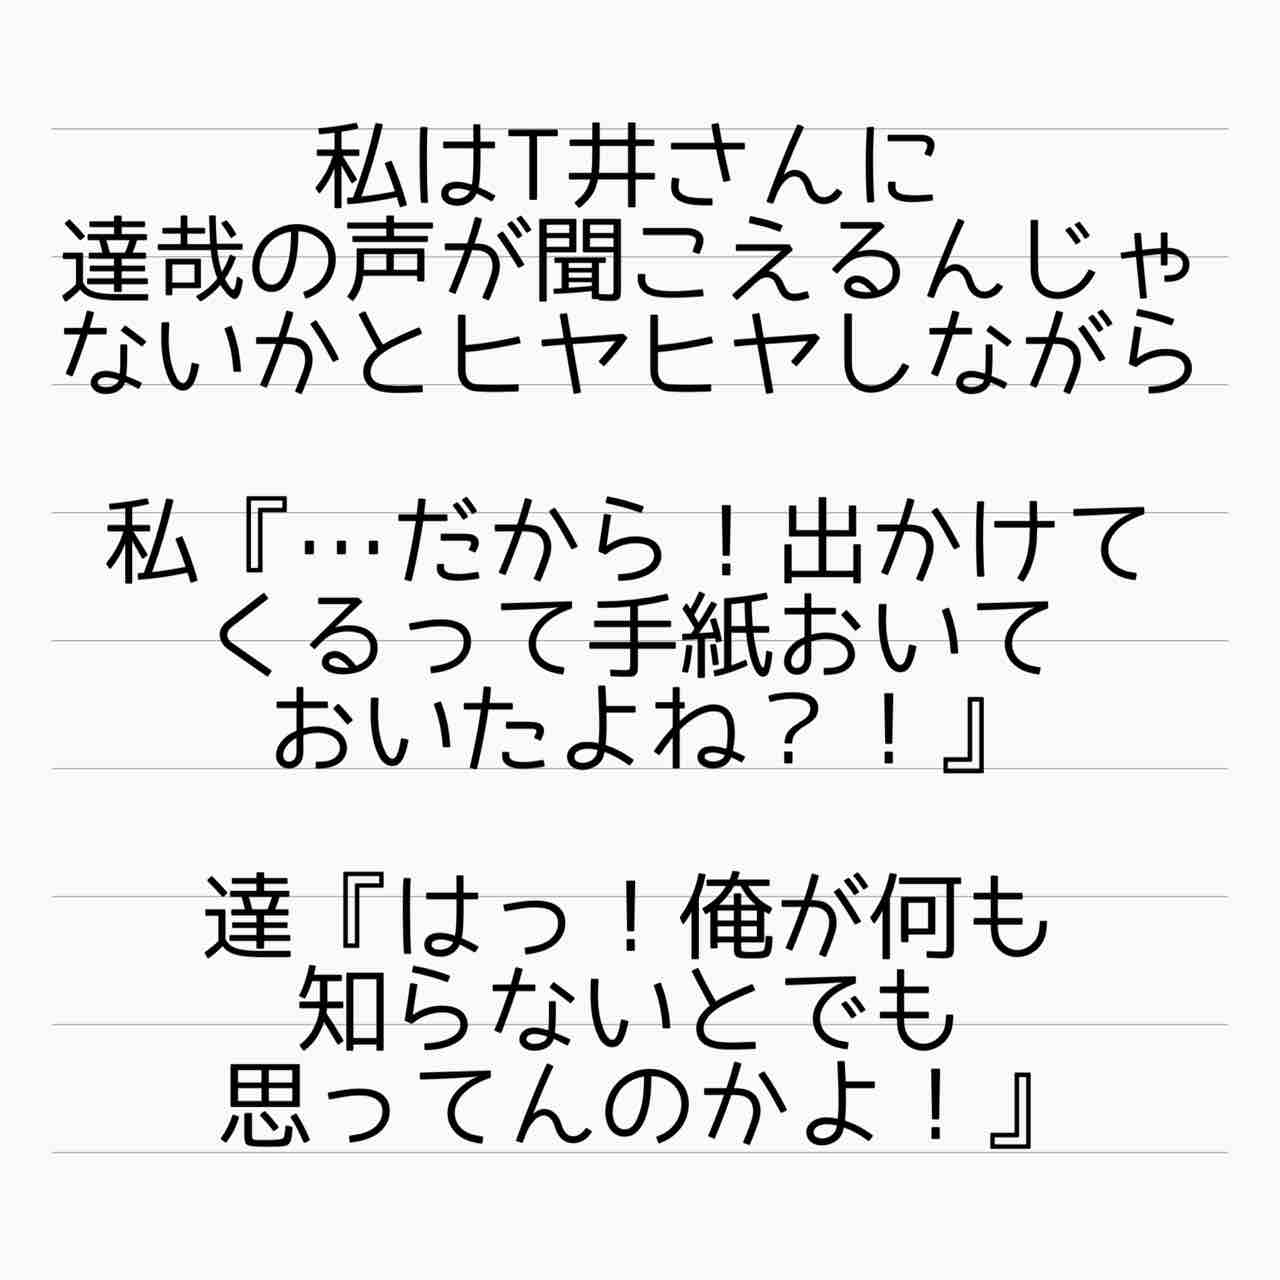 私はT井さんに
達哉の声が聞こえるんじゃ
ないかとヒヤヒヤしながら
私『…だから！出かけて
くるって手紙おいて
おいたよね？！』
達『はっ！俺が何も
知らないとでも
思ってんのかよ！』